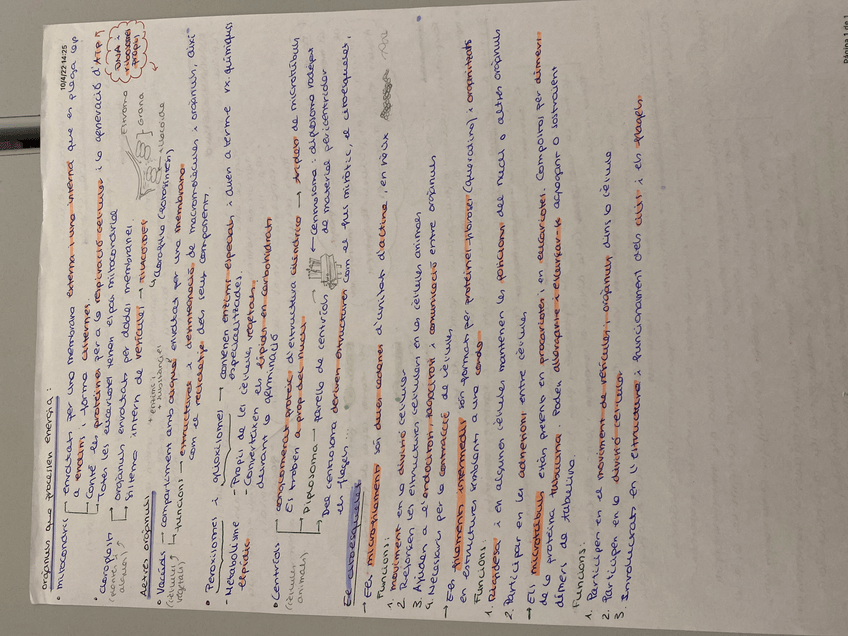 10/4/22 14:25
Pàgina 1 de 1
orgànuls que processen energia:
• mitocondris envoltats per una membrana externa i una interna que es plega cap
a endins i forma cisternes.
Conté les proteïnes per a la respiració cel·lular i la generació d'ATP
Totes les eucariotes tenen els mitocondris
DNA i ribosomes propis
• cloroplast → orgànuls envoltats per dobles membranes
(només algues)
Sistema intern de vesícules → TILACOIDES
↳ clorofil·la
Estroma
Grana
tilacoide
Altres orgànuls
+ enzims i + substàncies
• Vacuols → compartiments amb aigua envoltats per una membrana.
(cèl·lules vegetals)
↳ funcions → estructurals i d'eliminació de macromolècules i orgànuls, així
com el reciclatge dels seus components
• Peroxisomes i glioxisomes → contenen enzims especials i duen a terme rx. químiques
especialitzades.
- Metabolisme lipídic
- Propi de les cèl·lules vegetals.
- Converteixen els lípids en carbohidrats
durant la germinació
• Centríols
(cèl·lules animals)
conglomerat proteic d'estructura cilíndrica → triplets de microtúbuls
Es troben a prop del nucli
Diplosoma → parella de centríols
← centrosoma: diplosoma rodejat
de material pericentriolar
Del centrosoma deriven estructures com el fus mitòtic, el citoesquelet,
els flagels...
El citoesquelet
→ Els microfilaments són dues cadenes d'unitats d'actina, en hèlix
Funcions:
1. moviment en la divisió cel·lular
2. Reforçen les estructures cel·lulars en les cèl·lules animals
3. Ajuden a l'endocitosi, fagocitosi i comunicació entre orgànuls
4. Necessaris per la contracció de cèl·lules
→ Els filaments intermedis són formats per proteïnes fibroses (queratina) i organitzats
en estructures semblants a una corda
Funcions:
1. Rigidesa i en algunes cèl·lules mantenen les posicions del nucli o altres orgànuls
2. Participar en les adhesions entre cèl·lules
→ Els microtúbuls estan presents en procariotes i en eucariotes. Compostos per dímers
de la proteïna tubulina. Poden allargar-se i escurçar-se agregant o sostraient
dímers de tubulina.
Funcions:
1. Participen en el moviment de vesícules i orgànuls dins la cèl·lula
2. Participen en la divisió cel·lular
3. Involucrats en l'estructura i funcionament dels cilis i els flagels.